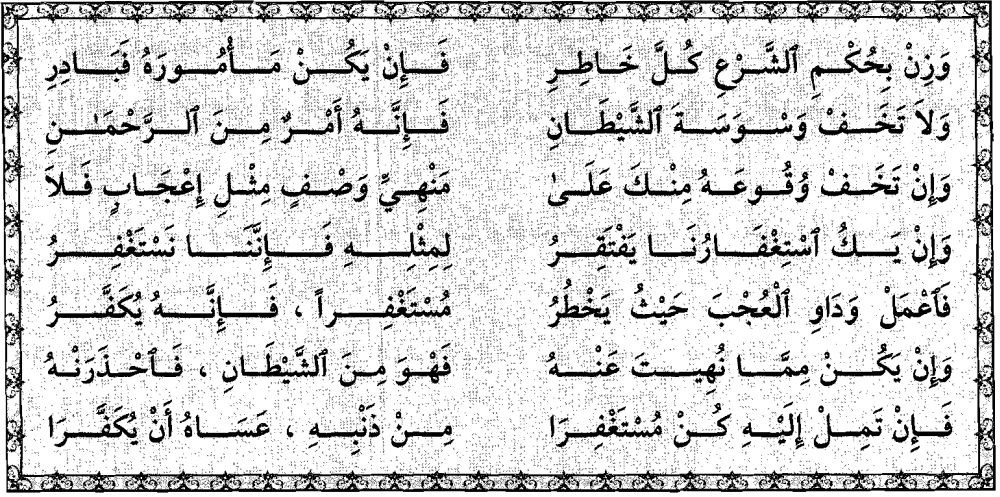 وَزِنْ بِحُكْمِ ٱلشَّرْعِ كُلَّ خَاطِرِ فَإِنْ يَكُنْ مَأْمُورَهُ فَبَادِرِ
وَلاَ تَخَفْ وَسْوَسَةَ ٱلشَّيْطَانِ فَإِنَّهُ أَمْرٌ مِنَ ٱلرَّحْمَـٰنِ
وَإِنْ تَخَفْ وُقُوعَهُ مِنْكَ عَلَىٰ مَنْهِيِّ وَصْفٍ مِثْلِ إِعْجَابٍ فَلاَ
وَإِنْ يَكُ ٱسْتِغْفَارُنَا يَفْتَقِرُ لِمِثْلِهِ فَإِنَّنَا نَسْتَغْفِرُ
فَٱعْمَلْ وَدَاوِ ٱلْعُجْبَ حَيْثُ يَخْطُرُ مُسْتَغْفِراً ، فَإِنَّهُ يُكَفَّرُ
وَإِنْ يَكُنْ مِمَّا نُهِيتَ عَنْهُ فَهْوَ مِنَ ٱلشَّيْطَانِ ، فَٱحْذَرَنْهُ
فَإِنْ تَمِلْ إِلَيْهِ كُنْ مُسْتَغْفِرَا مِنْ ذَنْبِهِ ، عَسَاهُ أَنْ يُكَفَّرَا